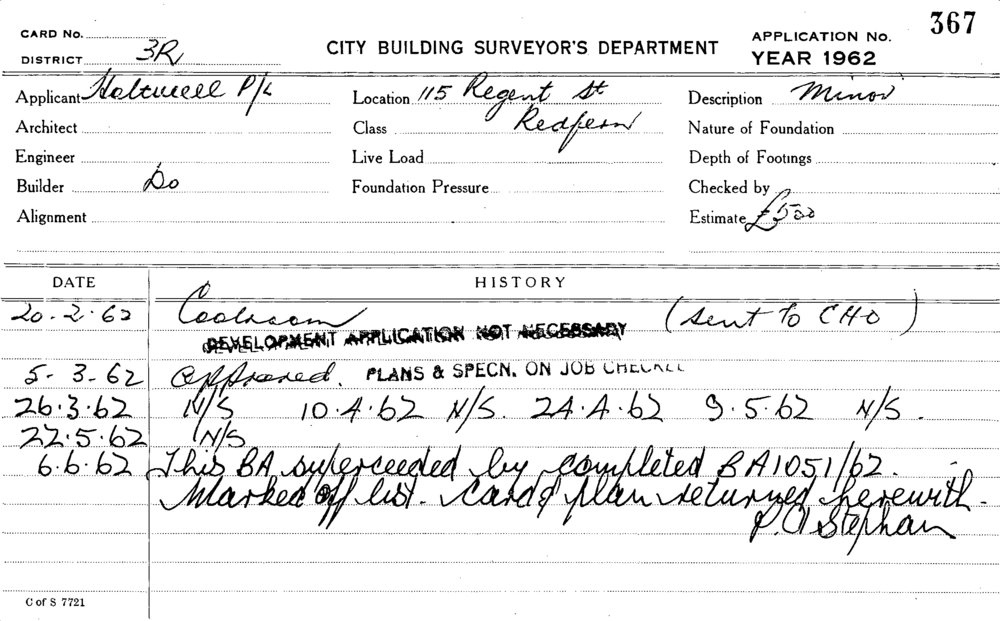 367
CARD No.
APPLICATION No.
DISTRICT 3R
CITY BUILDING SURVEYOR'S DEPARTMENT
YEAR 1962
Applicant Haltwell P/L
Location 115 Regent St
Description Minor
Architect
Class Redfern
Nature of Foundation
Engineer
Live Load
Depth of Footings
Builder Do
Foundation Pressure
Checked by
Alignment
Estimate £500
DATE
HISTORY
20.2.62 Coolroom (sent to CHO)
DEVELOPMENT APPLICATION NOT NECESSARY
5-3-62 approved. PLANS & SPECN. ON JOB CHECKED
26.3.62 N/S 10.4.62 N/S. 24.4.62 9.5.62 N/S.
22.5.62 N/S
6.6.62 This BA superceeded by completed BA1051/62.
Marked off list. Card & plan returned herewith.
Stephan
C of S 7721